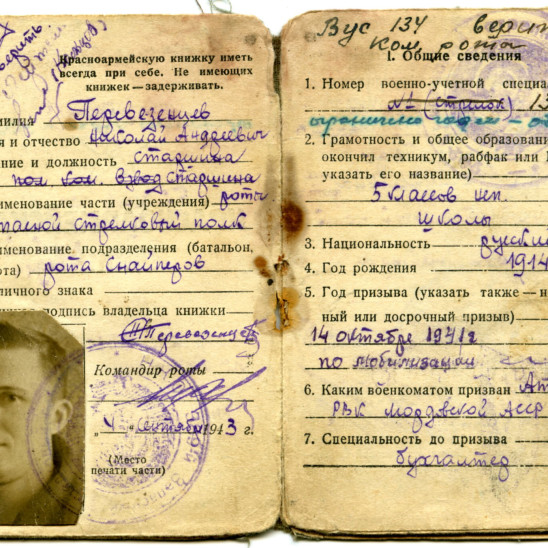 Красноармейскую книжку иметь
всегда при себе. Не имеющих
книжек — задерживать.
милия Перевезенцев
я и отчество Николай Андреевич
ние и должность старшина
пом. ком. взвод старшина
именование части (учреждения) роты
стрелковый полк
именование подразделения (батальон,
ота) рота Снайперов
личного знака
подпись владельца книжки
Перевезенцев
Командир роты
„4" сентября 1943 г.
(Место
печати части)
Вус 134 верить
Ком. рота
I. Общие сведения
1. Номер военно-учетной специа
№1 (стрелок) 13
ограниченно годен
2. Грамотность и общее образовани
окончил техникум, рабфак или
указать его название)
5 классов
школы
3. Национальность русски
4. Год рождения 1914
5. Год призыва (указать также — н
ный или досрочный призыв)
14 октября 1941 г
по мобилизации
6. Каким военкоматом призван Ат
РВК Мордовской АССР
7. Специальность до призыва
бухгалтер